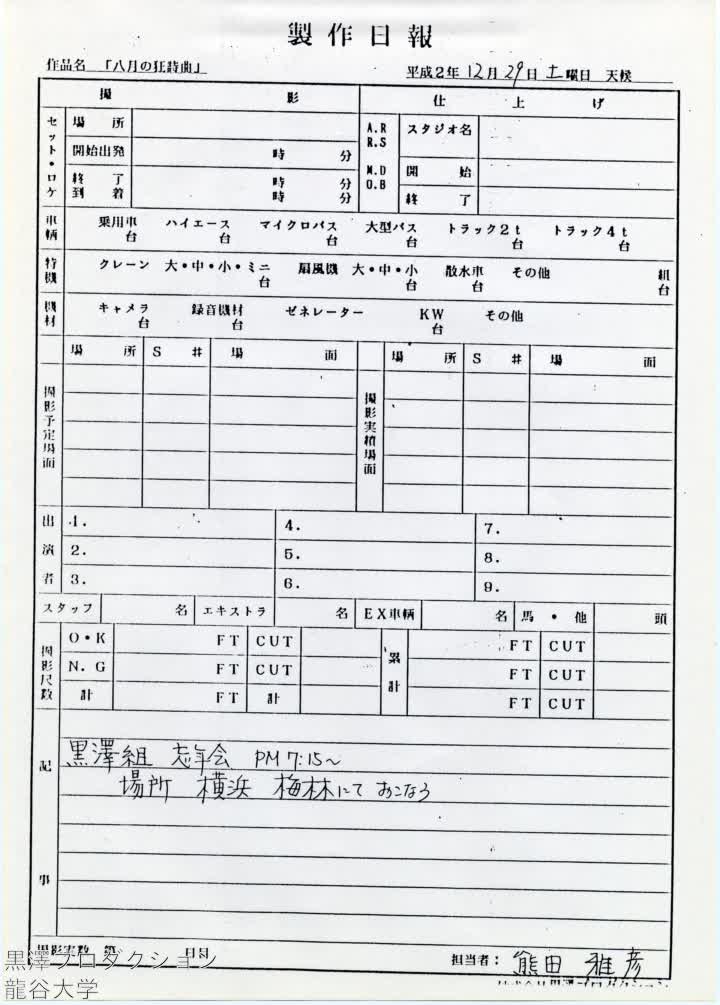 製作日報
作品名 「八月の狂詩曲」 平成2年 12月 29日 土曜日 天候
撮 影 仕 上 げ
セット・ロケ 場 所 A.R R.S M.D O.B スタジオ名
開始出発 時 分 開 始
終 了 時 分 終 了
到 着 時 分
車輌 乗用車 台 ハイエース 台 マイクロバス 台 大型バス 台 トラック2t 台 トラック4t 台
特機 クレーン 大・中・小・ミニ 台 扇風機 大・中・小 台 散水車 台 その他 組 台
機材 キャメラ 台 録音機材 台 ゼネレーター KW 台 その他
撮影予定場面 場 所 S # 場 面 撮影実績場面 場 所 S # 場 面
出演者 1. 4. 7.
2. 5. 8.
3. 6. 9.
スタッフ 名 エキストラ 名 EX車輌 名 馬・他 頭
撮影尺数 O・K FT CUT 累計 FT CUT
N.G FT CUT FT CUT
計 FT 計 FT CUT
記事
黒澤組 忘年会 PM 7:15〜
場所 横浜 梅林にて おこなう
撮影実数 第 日目 担当者: 熊田 雅彦
黒澤プロダクション
龍谷大学